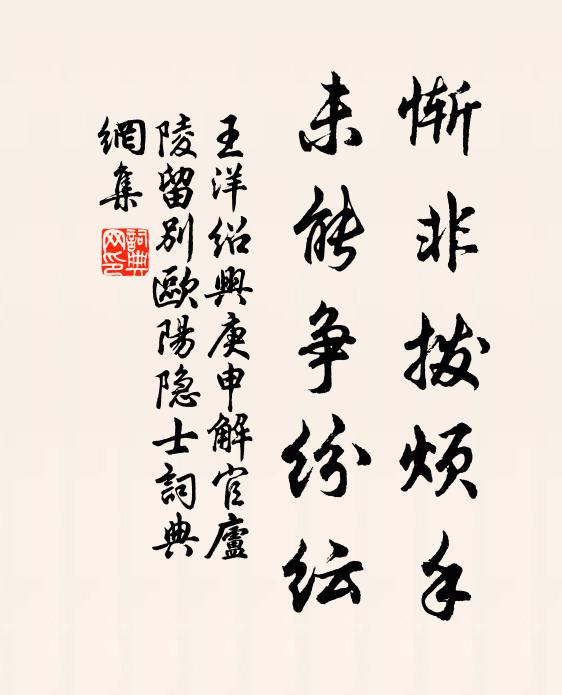 慚非拨烦手
未能争纷纭
王洋绍興庚申解官廬
陵留别歐陽隐士詞典
網集
詞典网印